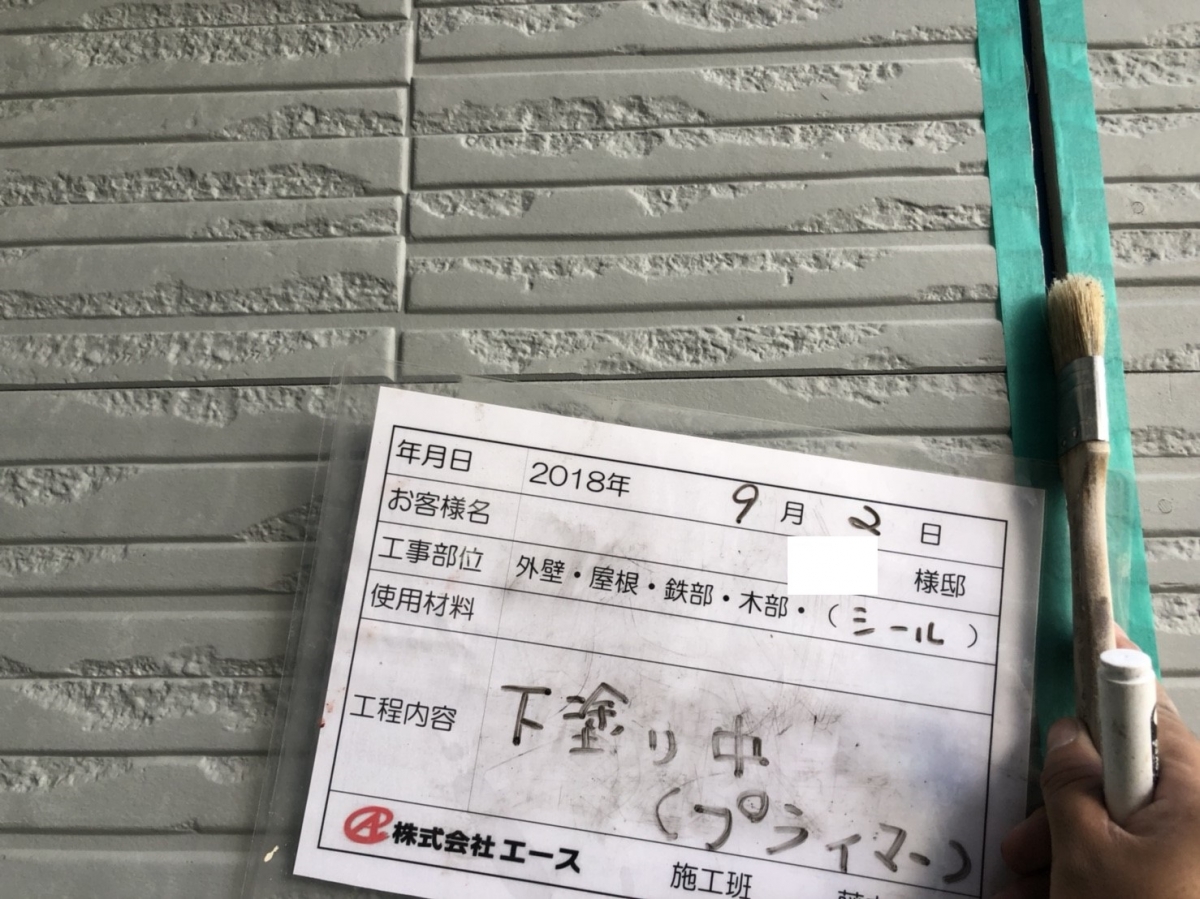 年月日 2018年 9 月 2 日
お客様名 様邸
工事部位 外壁・屋根・鉄部・木部・(シール)
使用材料
工程内容 下塗り中
(プライマー)
株式会社エース 施工班